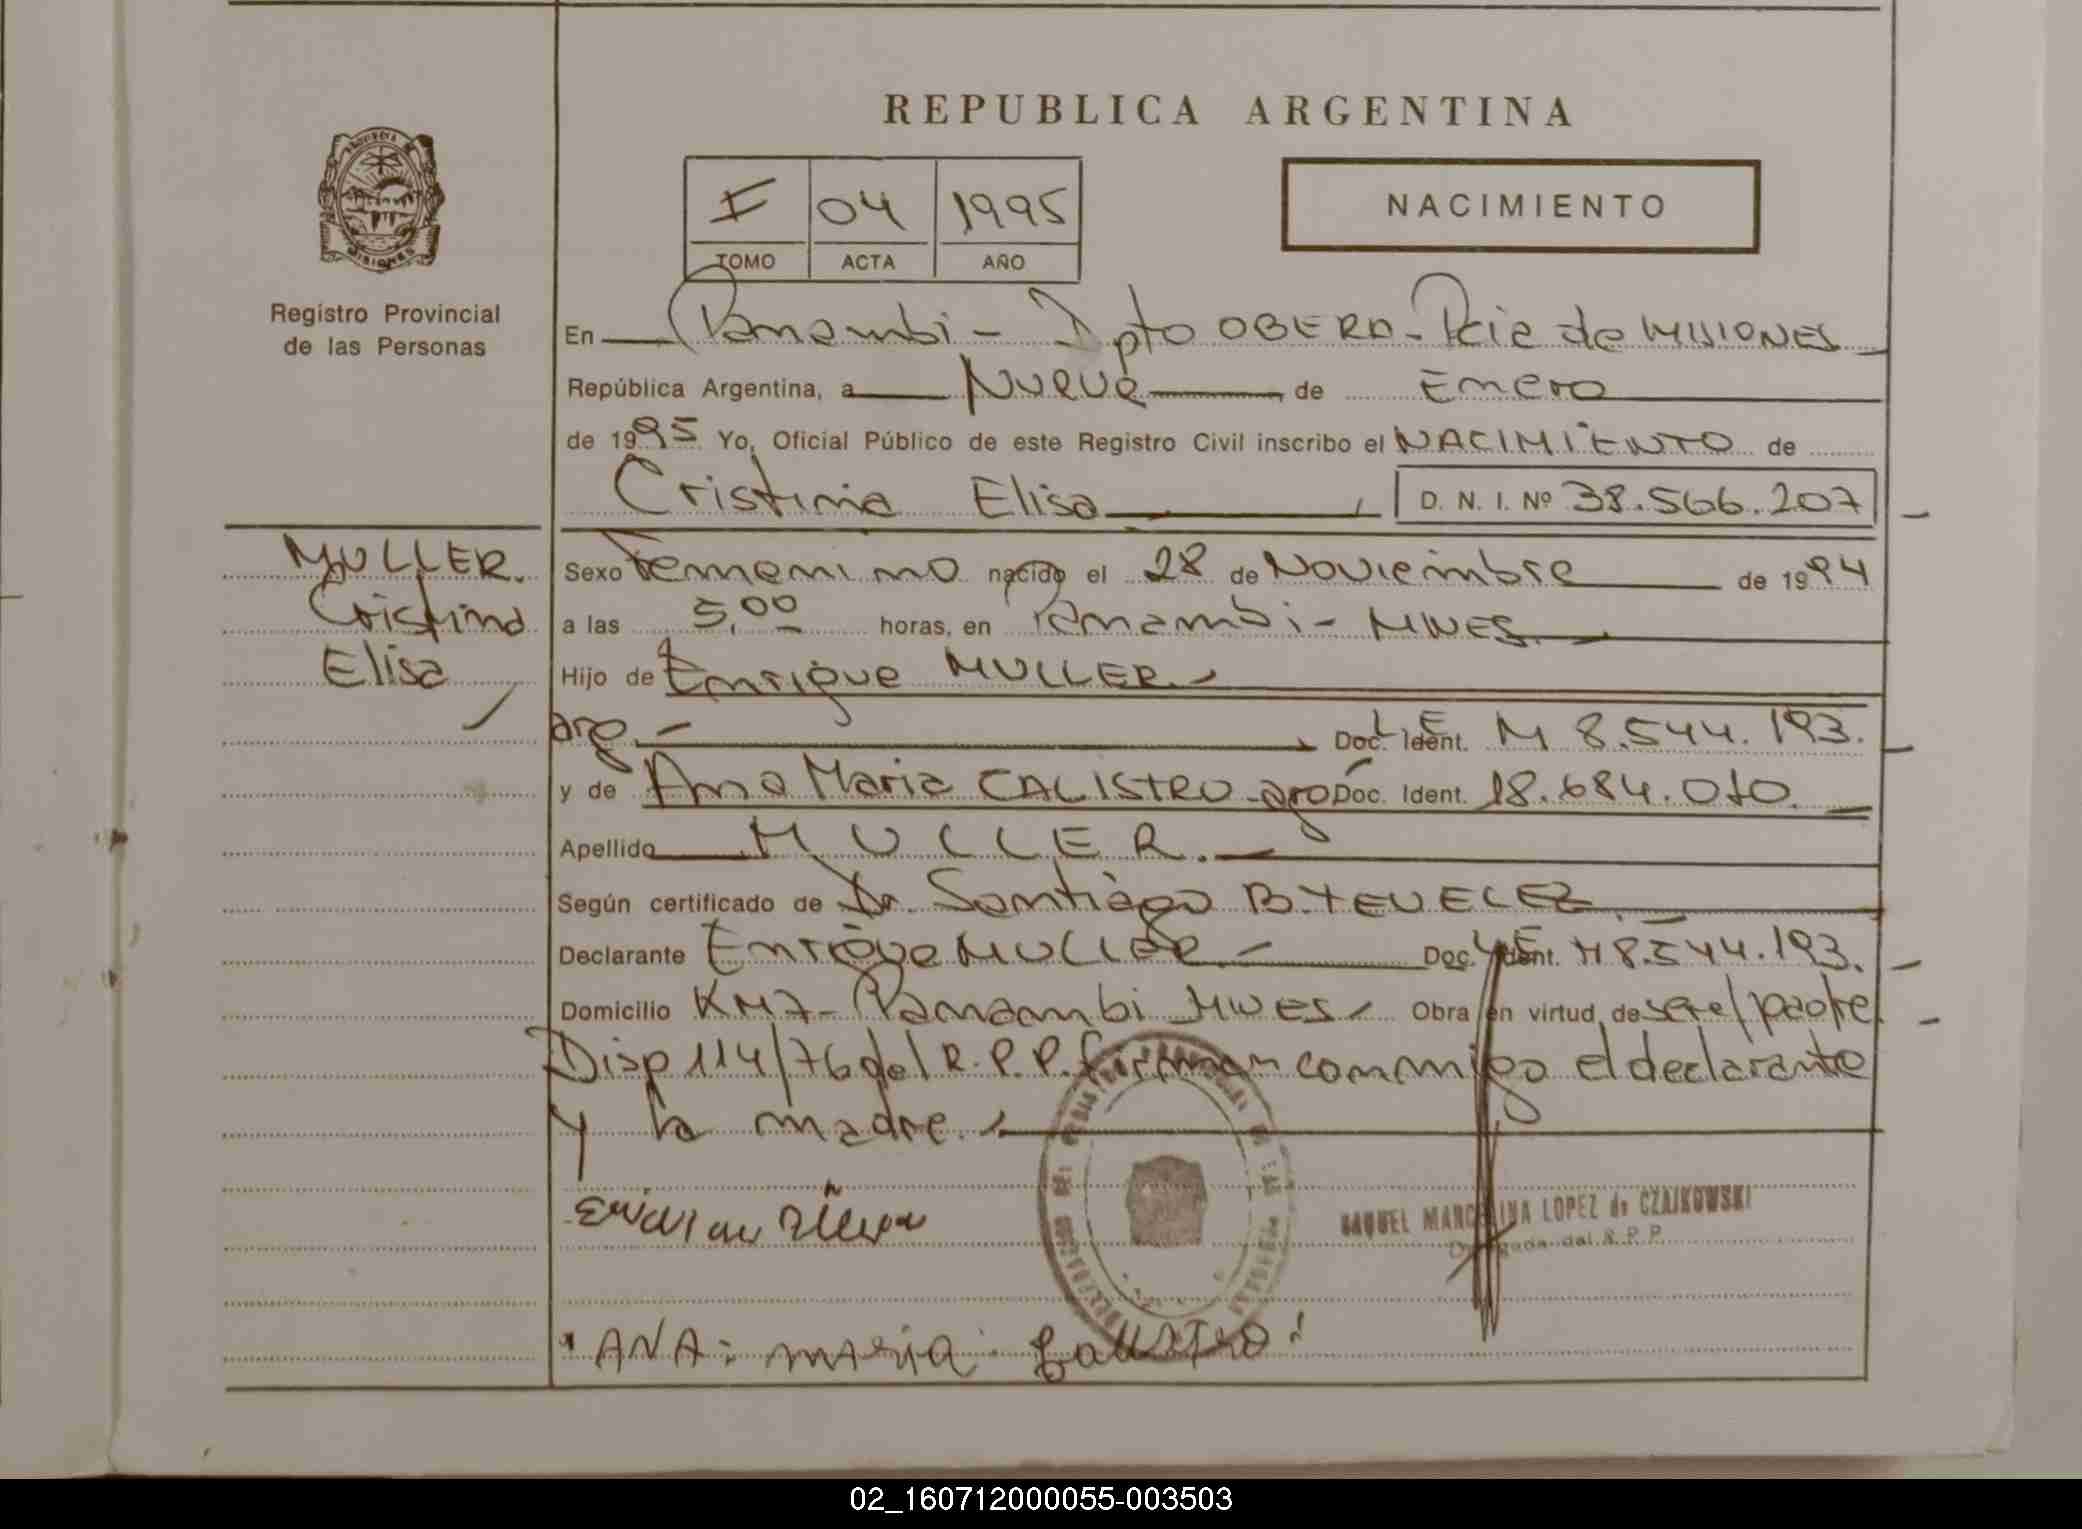 REPUBLICA ARGENTINA
PROVINCIA DE
MISIONES
I 04 1995
TOMO ACTA AÑO
NACIMIENTO
Registro Provincial
de las Personas
En Panambi - Dpto OBERA - Pcia de MISIONES
República Argentina, a Nueve de Enero
de 1995 Yo, Oficial Público de este Registro Civil inscribo el NACIMIENTO de
Cristina Elisa D. N. I. Nº 38.566.207
MULLER.
Cristina
Elisa
Sexo Femenino nacido el 28 de Noviembre de 1994
a las 5,00 horas, en Panambi - MNES.
Hijo de Enrique MULLER
arg. Doc. Ident. L.E. M 8.544.193.
y de Ana Maria CALISTRO - arg Doc. Ident. 18.684.010.
Apellido MULLER.
Según certificado de Dr. Santiago B.
Declarante Enrique MULLER. - Doc. Ident. L.E. M 8.544.193.
Domicilio KM 7 - Panambi MNES Obra en virtud de ser el padre
Disp 114/76 del R.P.P. firman conmigo el declarante
y la madre.
RAQUEL MARCELINA LOPEZ de CZAJKOWSKI
Delegada del R.P.P.
ANA: maria: Calistro
02_160712000055-003503